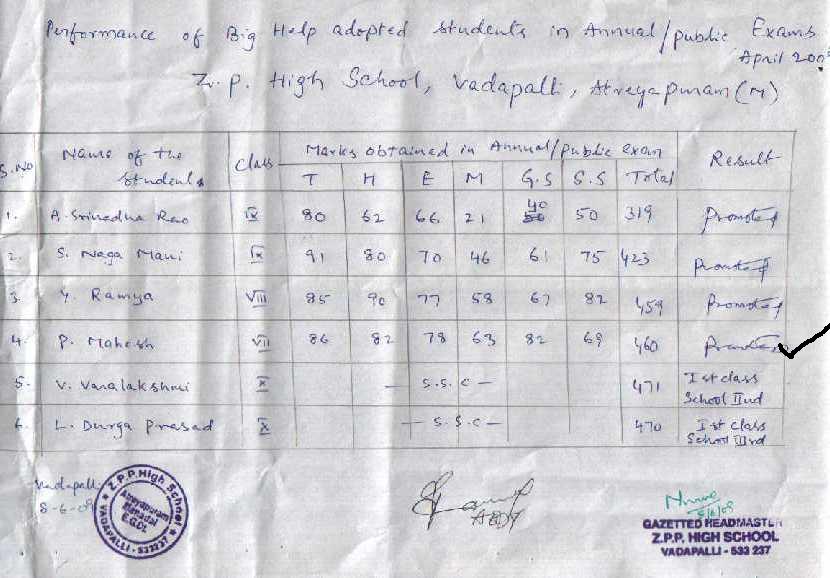 Performance of Big Help adopted students in Annual/public Exams
April 2009
Z.P. High School, Vadapalli, Atreyapuram (M)
S.NO Name of the Students Class Marks obtained in Annual/public exam Result
T H E M G.S S.S Total
1. A. Srinadha Rao IX 80 62 66 21 40 50 319 Promoted
2. S. Naga Mani IX 91 80 70 46 61 75 423 Promoted
3. Y. Ramya VIII 85 90 77 58 67 82 459 Promoted
4. P. Mahesh VII 86 82 78 63 82 69 460 Promoted
5. V. Varalakshmi X - S.S.C - 471 Ist class School IInd
6. L. Durga Prasad X - S.S.C - 470 Ist class School IIIrd
Vadapalli
8-6-09
Z.P.P. High School
Atreyapuram
Mandal
E.G.Dt.
VADAPALLI - 533237
8/6/09
GAZETTED HEADMASTER
Z.P.P. HIGH SCHOOL
VADAPALLI - 533 237